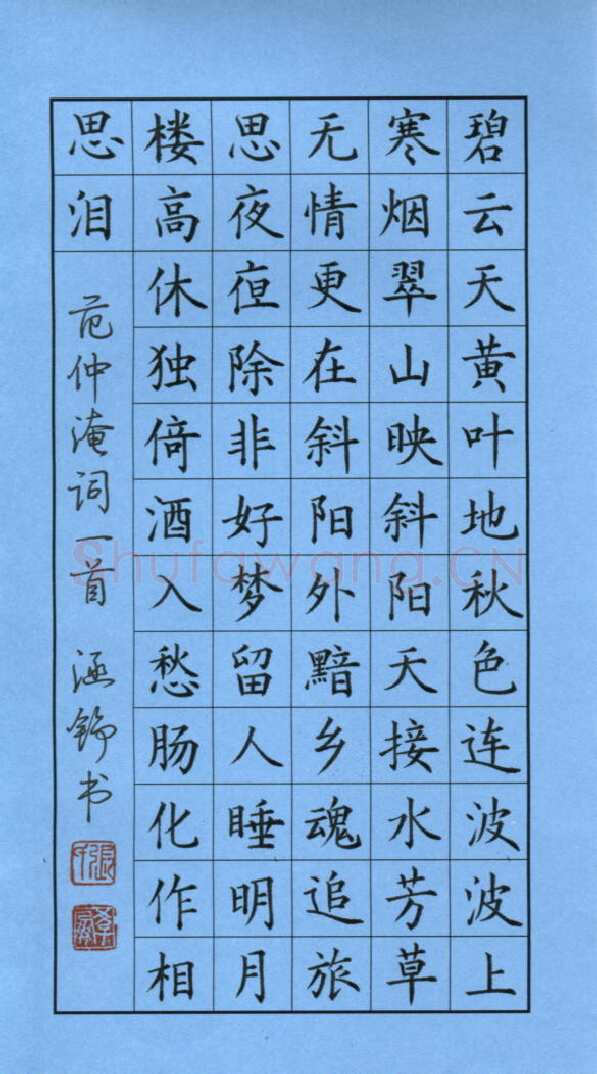 碧云天黄叶地秋色连波波上
寒烟翠山映斜阳天接水芳草
无情更在斜阳外黯乡魂追旅
思夜亱除非好梦留人睡明月
楼高休独倚酒入愁肠化作相
思泪
范仲淹词一首 涵书
Shufawang.CN